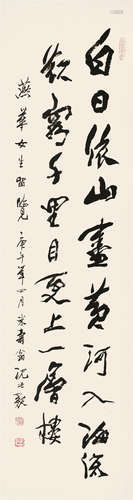 白日依山盡黃河入海流
欲窮千里目更上一層樓
燕華女生留覽 庚午年四月米壽翁